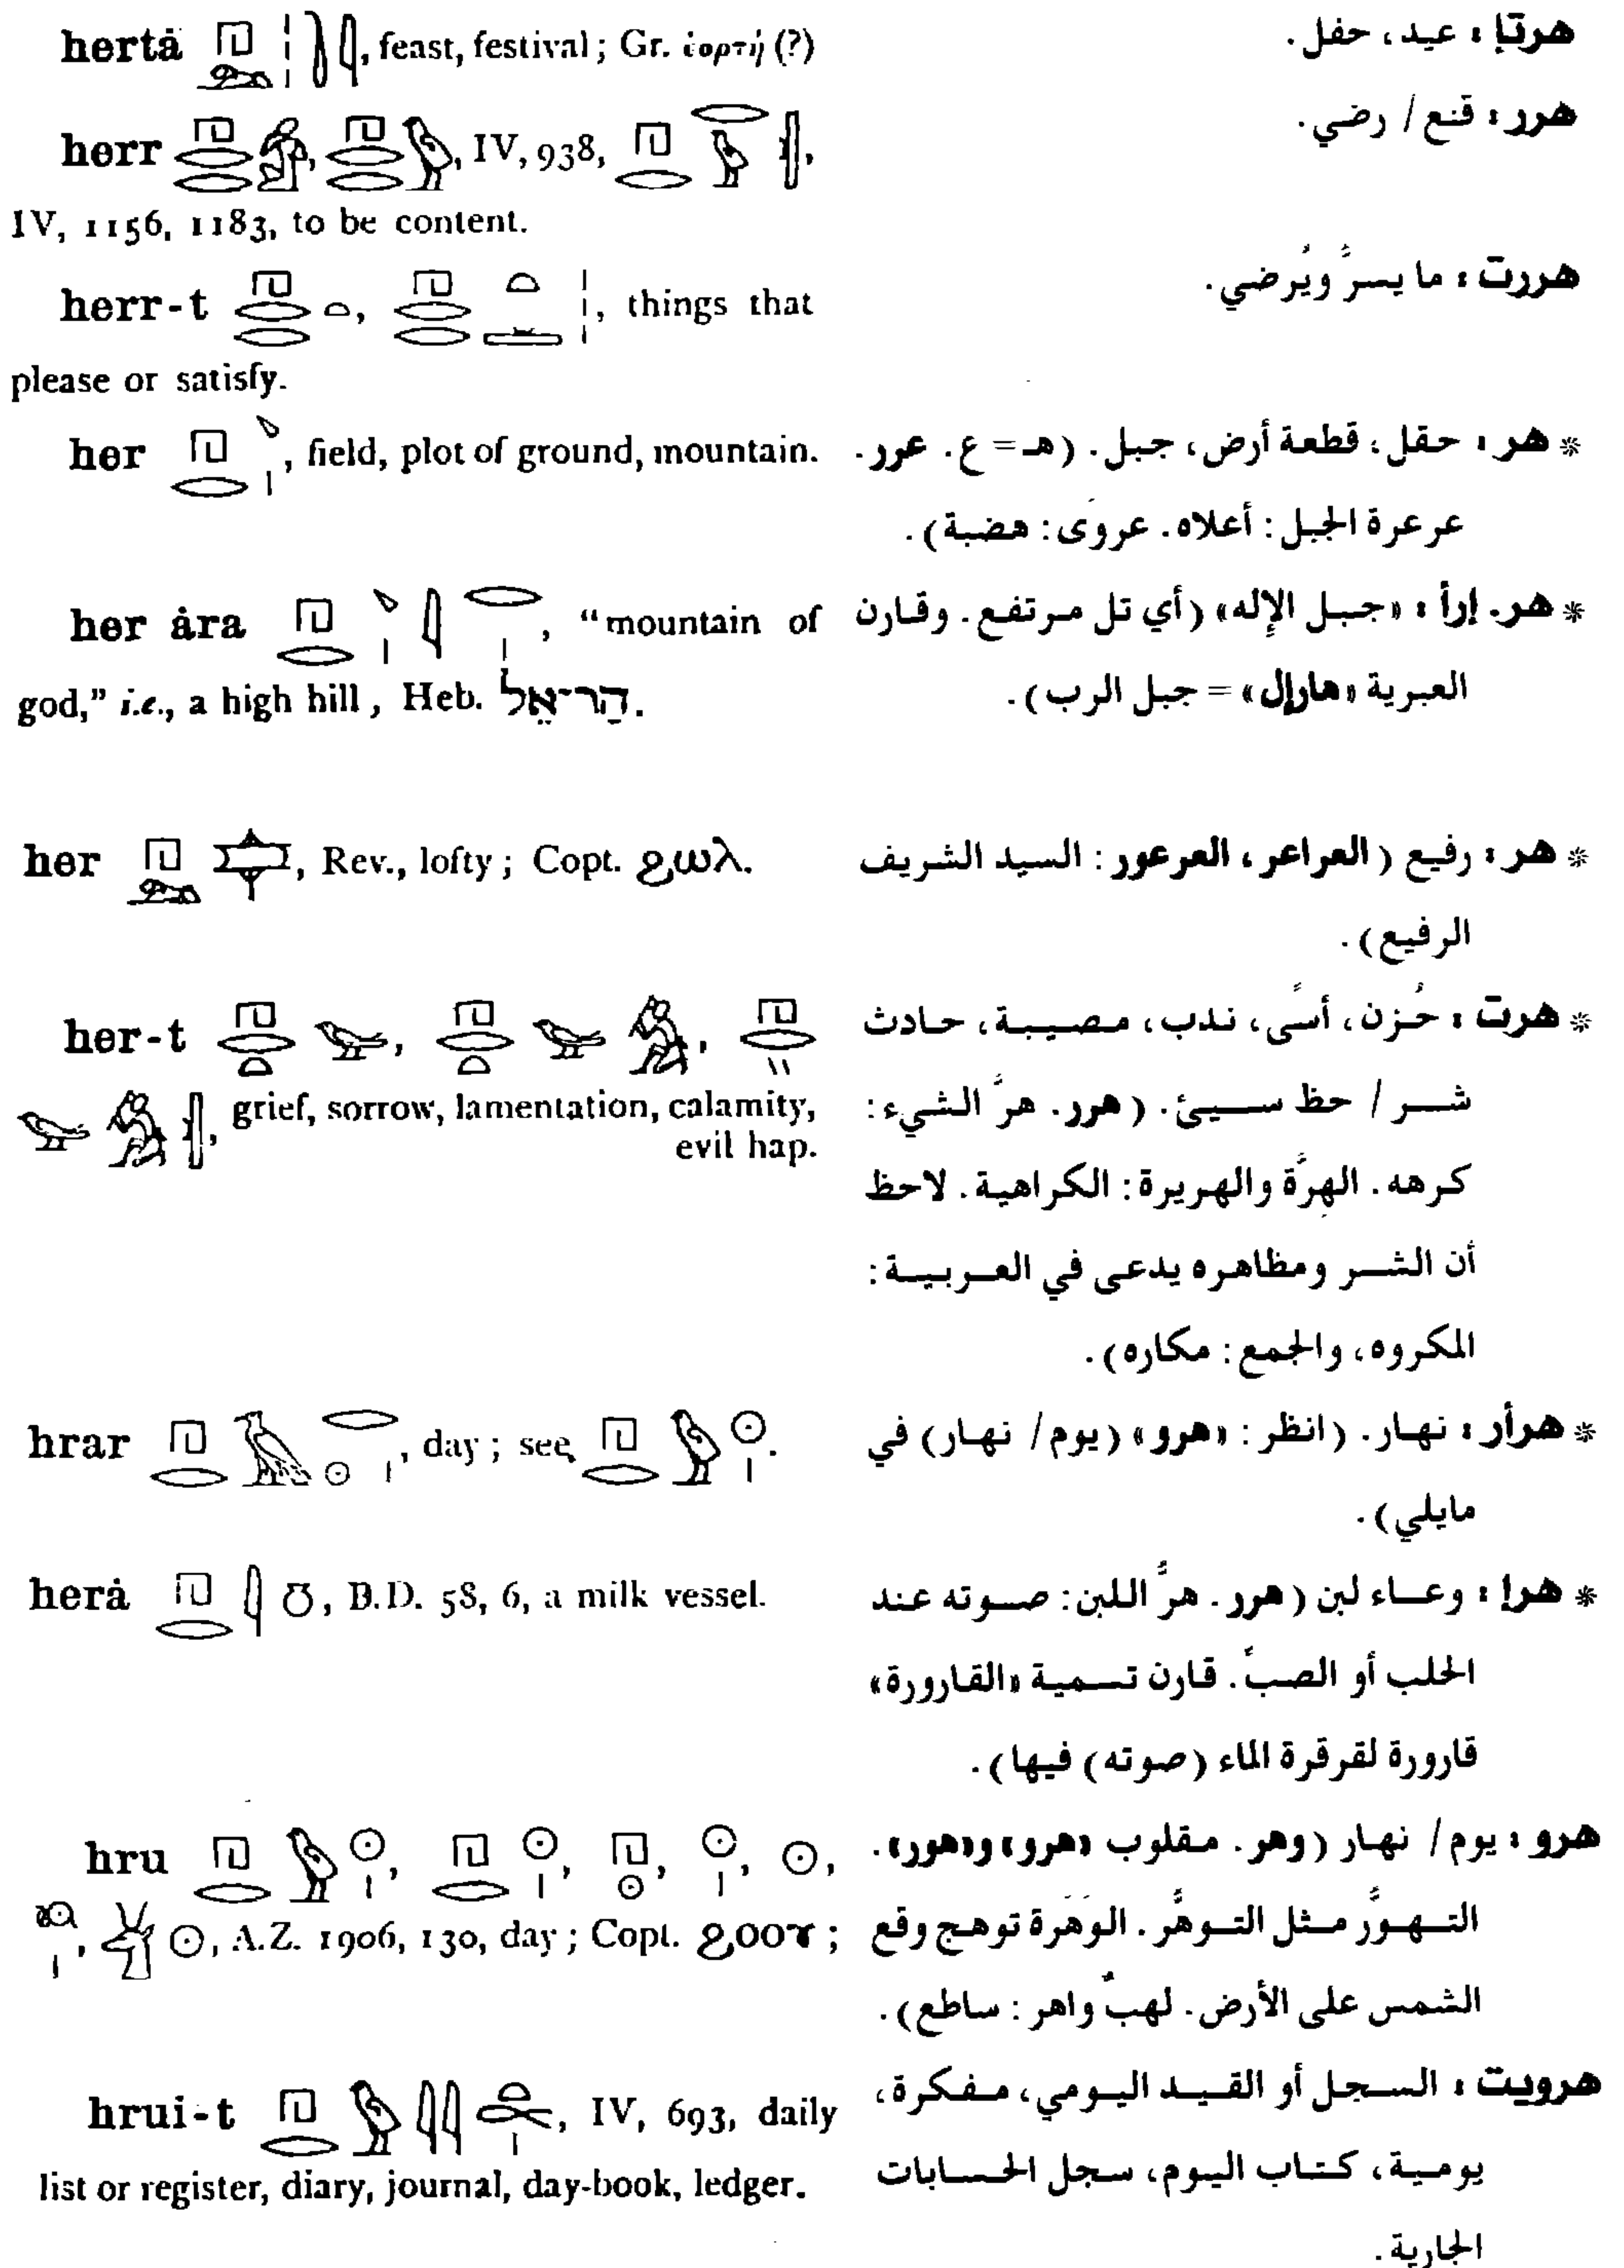 hertȧ 𓉔𓂋, feast, festival; Gr. ἑορτή (?)
herr, IV, 938,
IV, 1156, 1183, to be content.
herr-t, things that
please or satisfy.
her, field, plot of ground, mountain.
her ȧra, “mountain of
god,” i.e., a high hill, Heb. הַר־אֵל.
her, Rev., lofty; Copt. ϩⲱⲗ.
her-t
grief, sorrow, lamentation, calamity,
evil hap.
hrar, day; see
herȧ, B.D. 58, 6, a milk vessel.
hru
A.Z. 1906, 130, day; Copt. ϩⲟⲟⲩ;
hrui-t, IV, 693, daily
list or register, diary, journal, day-book, ledger.
هرتإ : عيد، حفل.
هرر : قنع / رضي.
هررت : ما يسرُّ ويُرضي.
* هر : حقل، قطعة أرض، جبل. (هـ = ع. عرر.
عرعرة الجبل: أعلاه. عروَى: هضبة).
* هر. إرأ : «جبل الإله» (أي تل مرتفع. وقارن
العبرية «هارإل» = جبل الرب).
* هر : رفيع (العراعر، العرعور: السيد الشريف
الرفيع).
* هرت : حُزن، أسًى، ندب، مصيبة، حادث
شر / حظ سيئ. (هرر. هرَّ الشيء:
كرهه. الهرَّة والهريرة: الكراهية. لاحظ
أن الشر ومظاهره يدعى في العربية:
المكروه، والجمع: مكاره).
* هرأر : نهار. (انظر: «هرو» (يوم / نهار) في
مايلي).
* هرإ : وعاء لبن (هرر. هرُّ اللبن: صوته عند
الحلب أو الصبّ. قارن تسمية «القارورة»
قارورة لقرقرة الماء (صوته) فيها).
هرو : يوم / نهار (وهر. مقلوب «هرو» و«هور».
التهوُّر مثل التوهُّر. الوَهَرة توهج وقع
الشمس على الأرض. لهبٌ واهر: ساطع).
هرويت : السجل أو القيد اليومي، مفكرة،
يومية، كتاب اليوم، سجل الحسابات
الجارية.